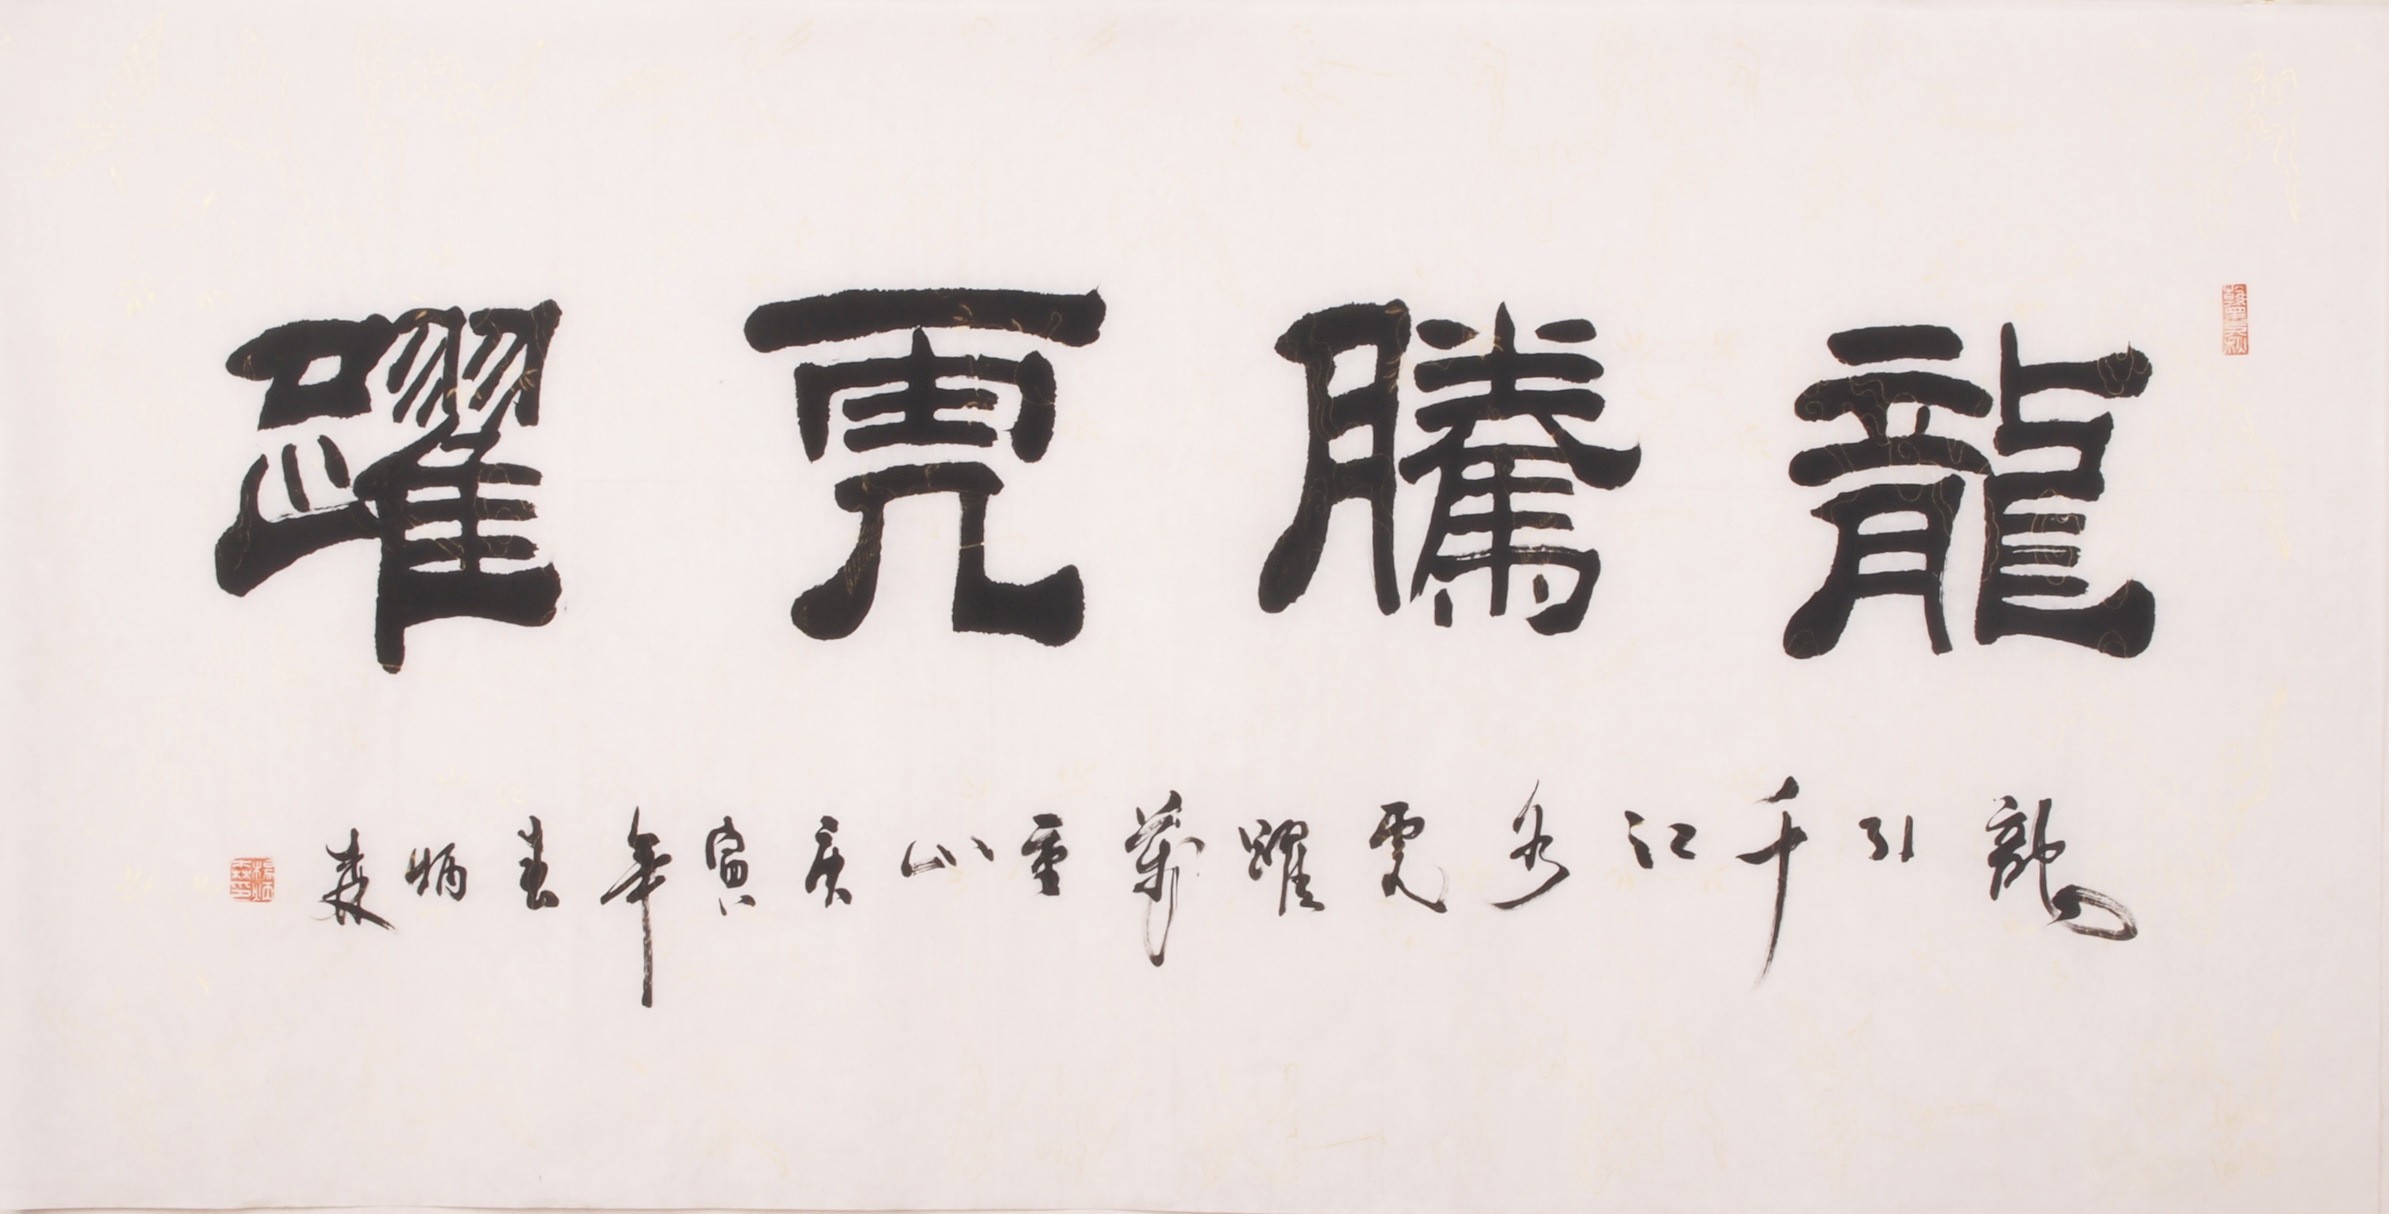 龍騰虎躍
龍引千江水虎躍萬重山庚寅年春炳森